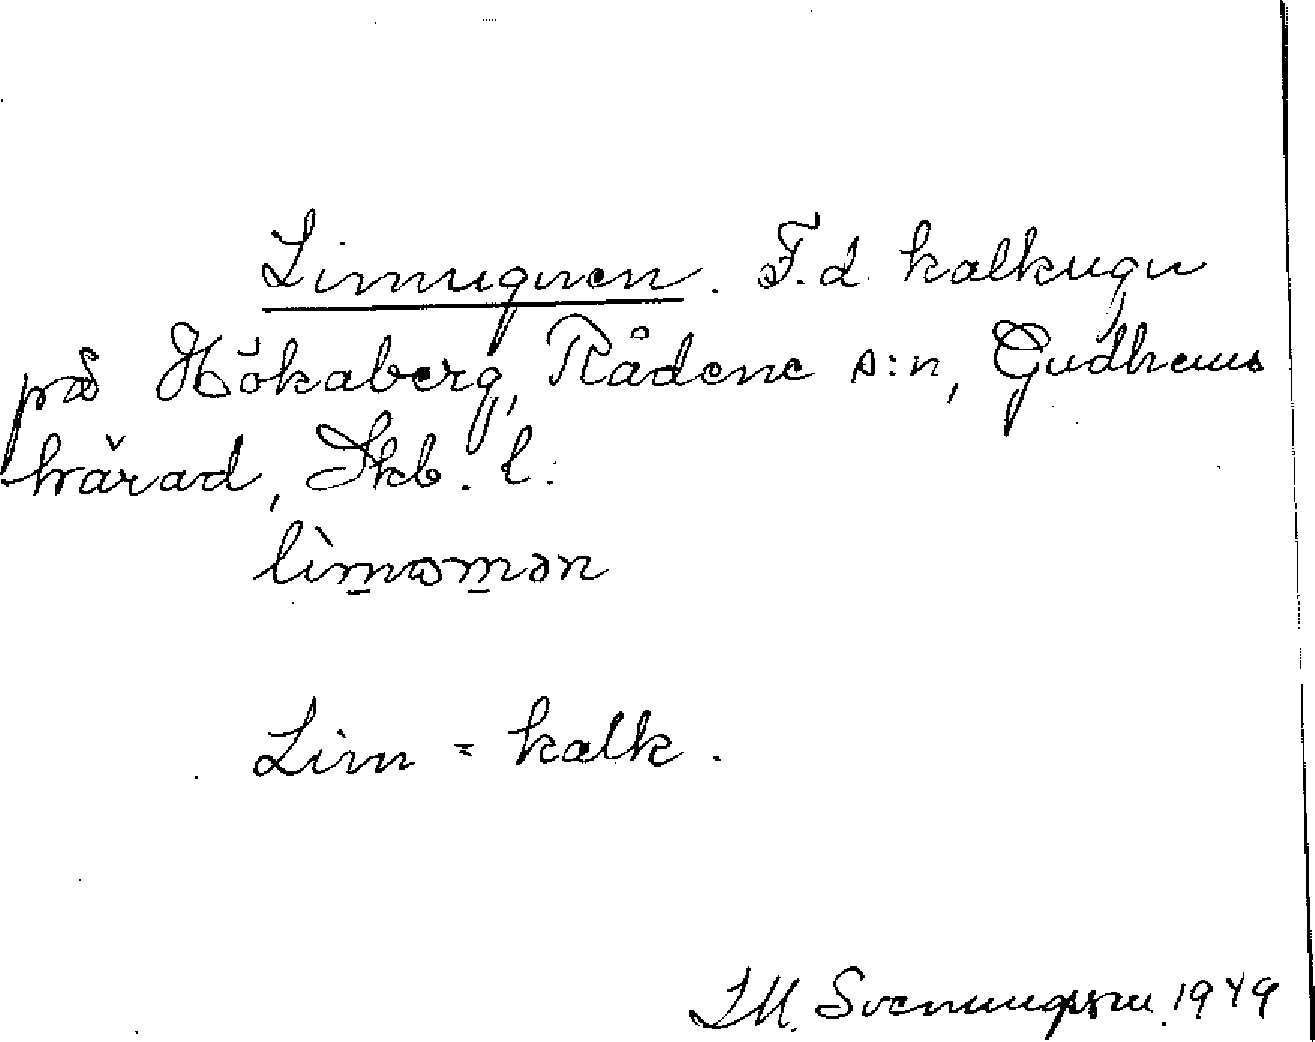 Limugnen. F.d. kalkugn
på Hökaberg, Rådene s:n, Gudhems
härad, Skb. l.
lìm̲ɷm̲ən
Lim = kalk.
I M. Svenungsson. 1949